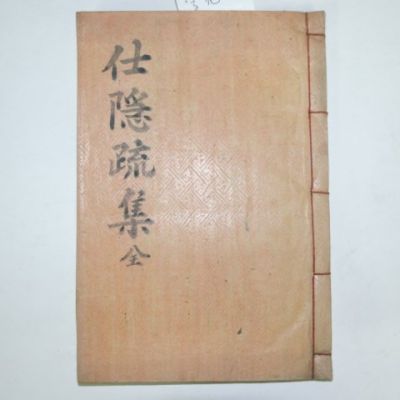 仕隱疏集全